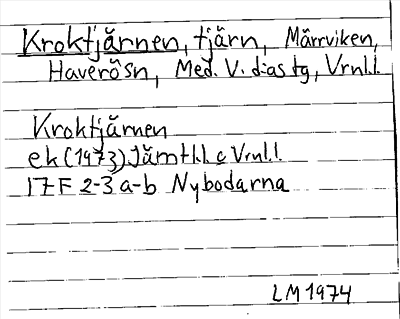 Kroktjärnen, tjärn, Märrviken,
Haverösn, Med. V. d:as tg, Vrnl.l.
Kroktjärnen
ek (1973) Jämtl.l. c Vrnl.l.
17F 2-3 a-b Nybodarna
LM 1974